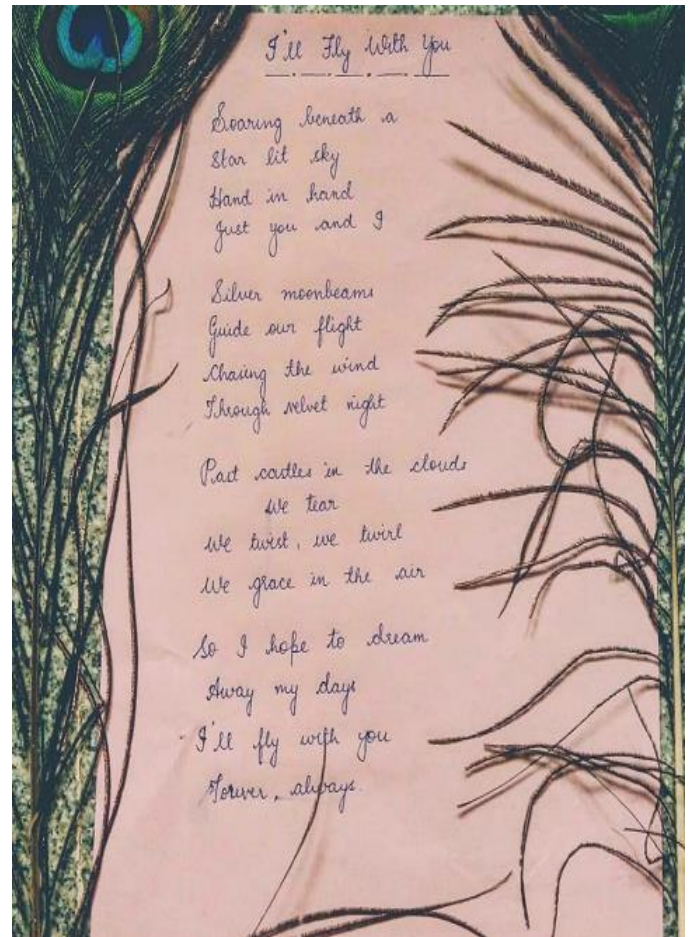 I'll Fly With You
Soaring beneath a
Star lit sky
Hand in hand
Just you and I
Silver moonbeams
Guide our flight
Chasing the wind
Through velvet night
Past castles in the clouds
We tear
We twist, we twirl
We grace in the air
So I hope to dream
Away my days
I'll fly with you
Forever, always.